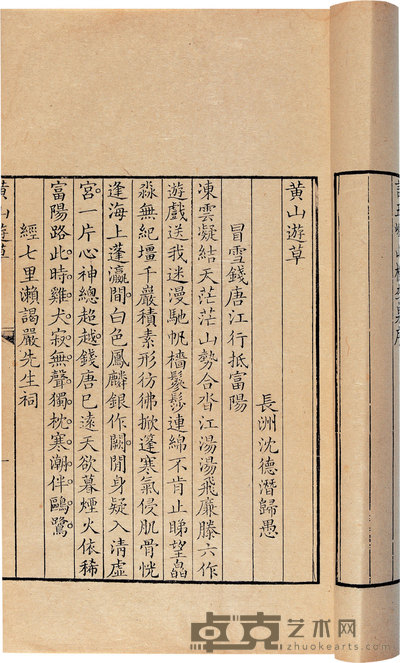 黃山遊草
長洲沈德潛歸愚
冒雪錢唐江行抵富陽
凍雲凝結天茫茫山勢合沓江湯湯飛廉滕六作
遊戲送我迷漫馳帆檣鬖髿連綿不肯止睇望皛
淼無紀壃千巖積素形彷彿掀篷寒氣侵肌骨恍
逢海上蓬瀛間白色鳳麟銀作闕閒身疑入清虛
宮一片心神總超越錢唐已遠天欲暮煙火依稀
富陽路此時雞犬寂無聲獨枕寒潮伴鷗鷺
經七里瀨謁嚴先生祠
黃山遊草
卓克艺术网
www.zhuokearts.com